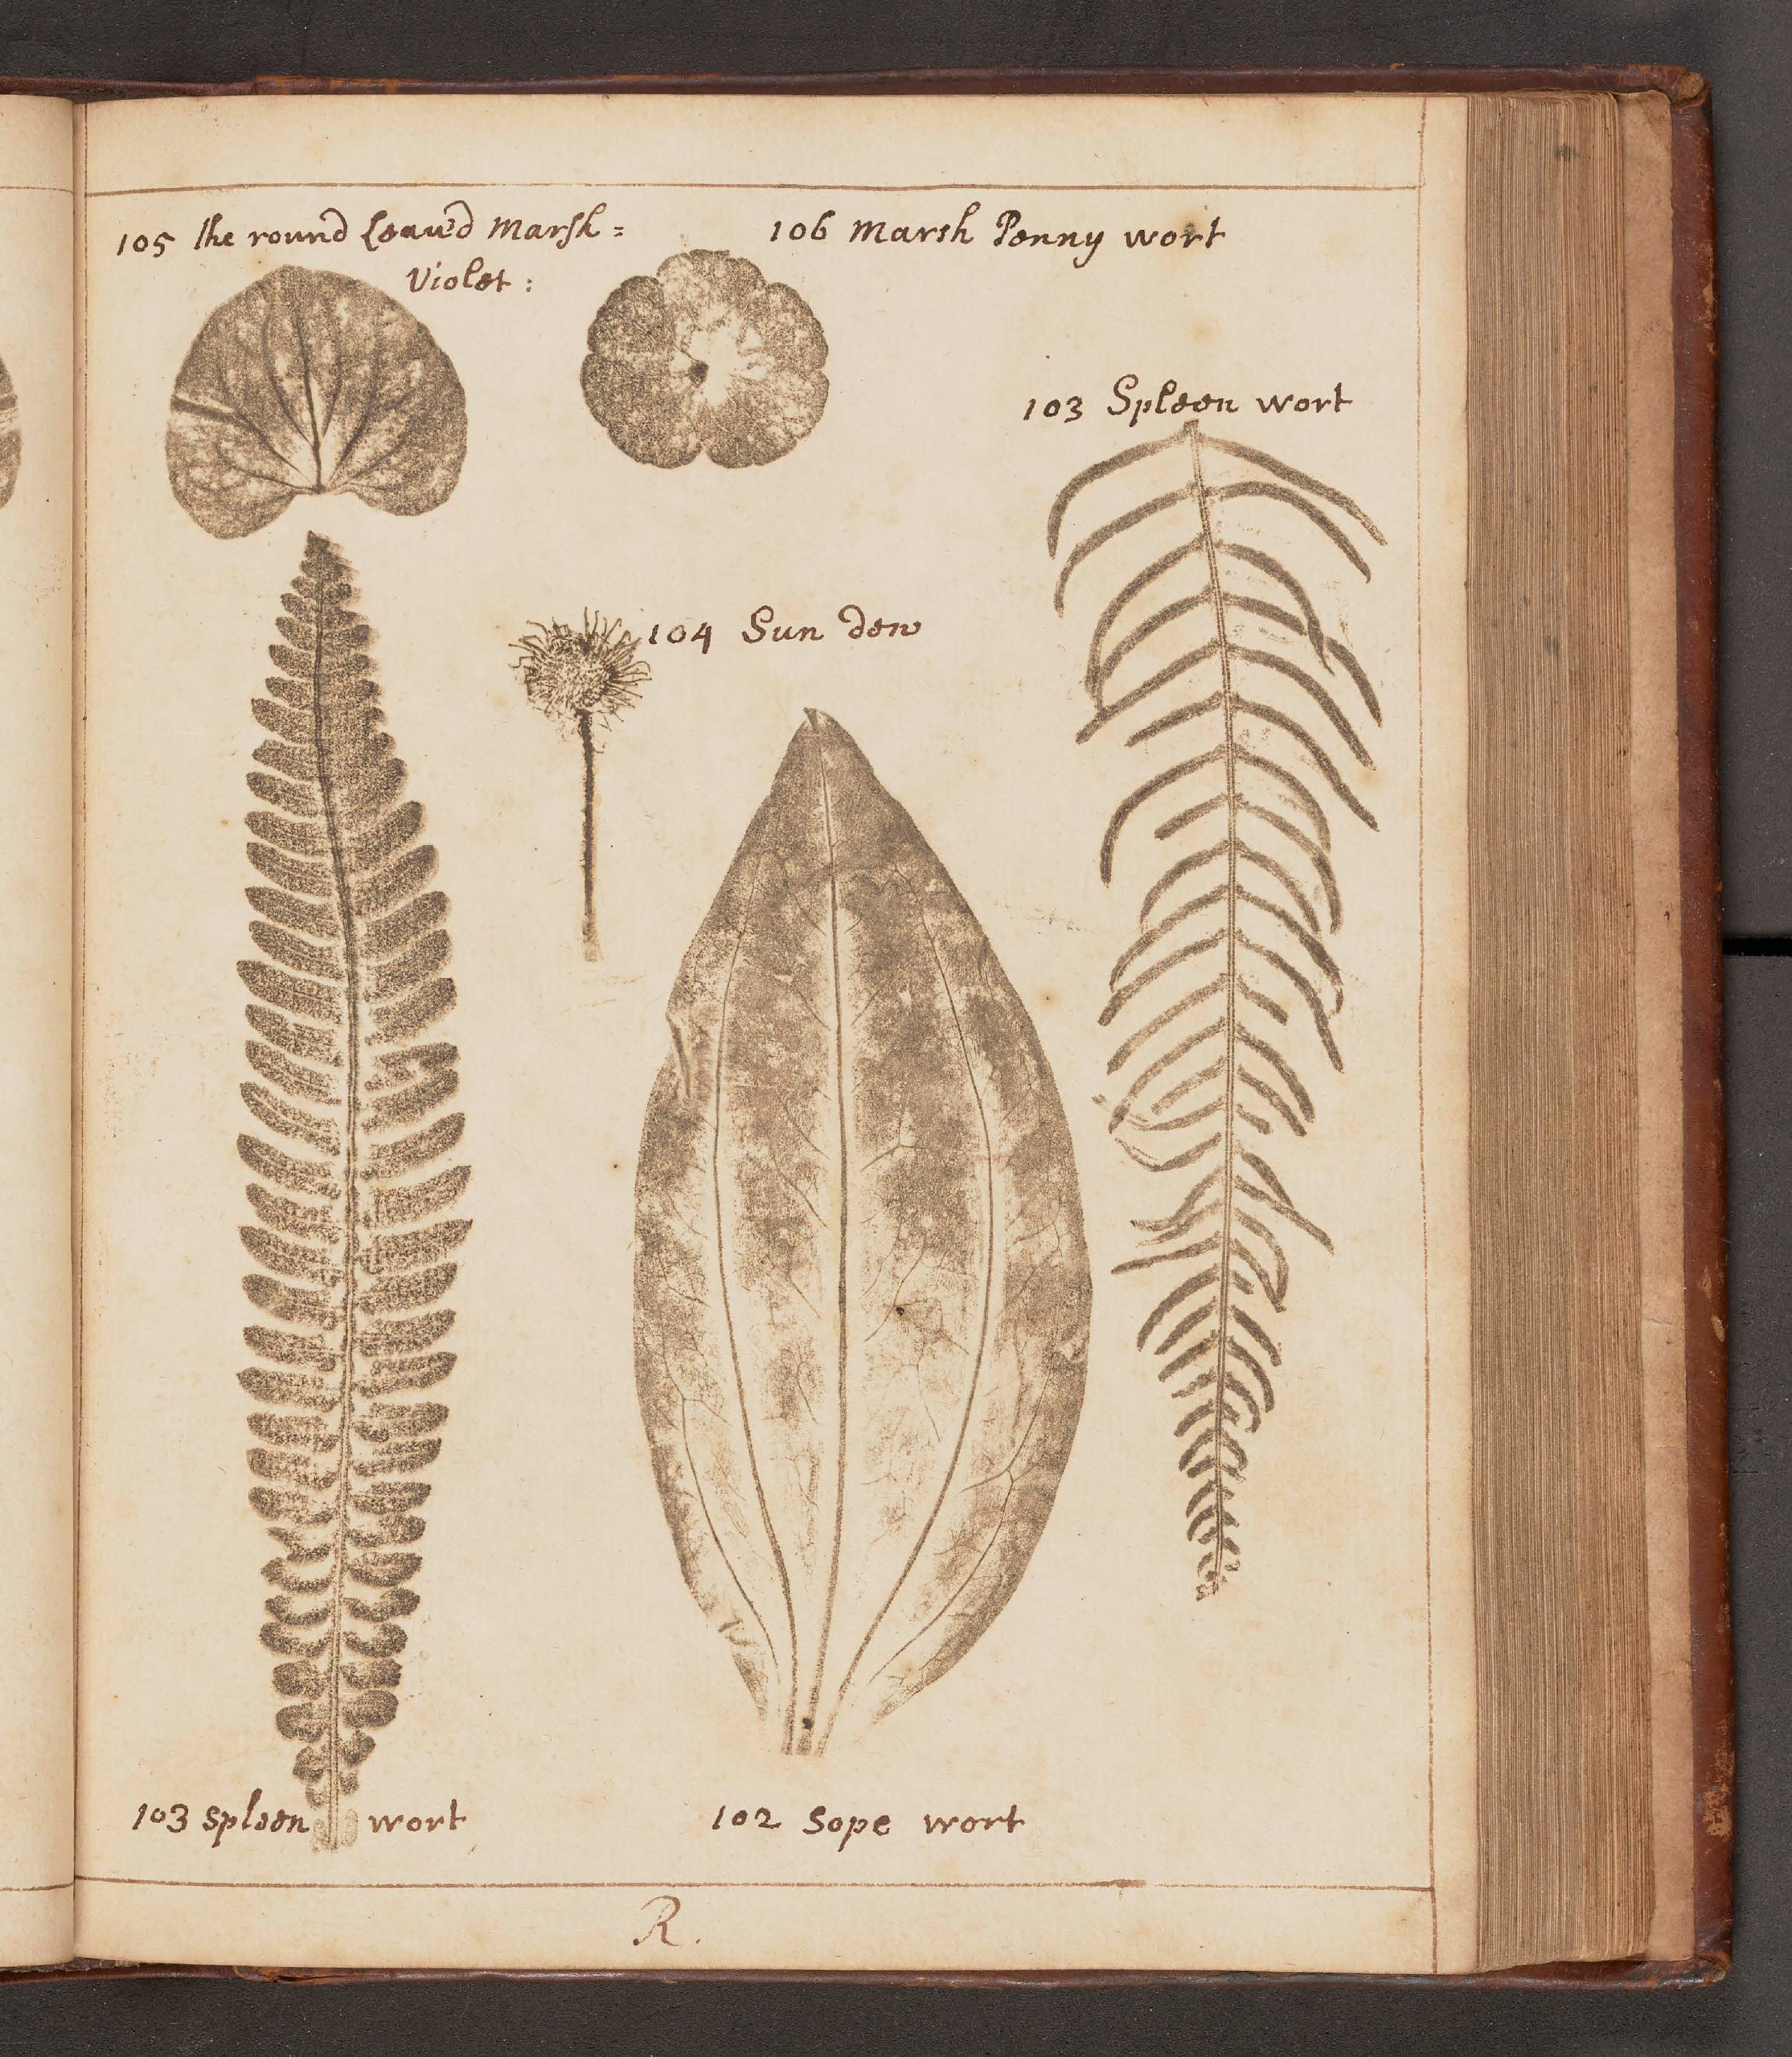 105 the round Leav'd Marsh=
Violet:
106 Marsh Penny wort
103 Spleen wort
104 Sun dew
103 Spleen wort
102 Sope wort
R.